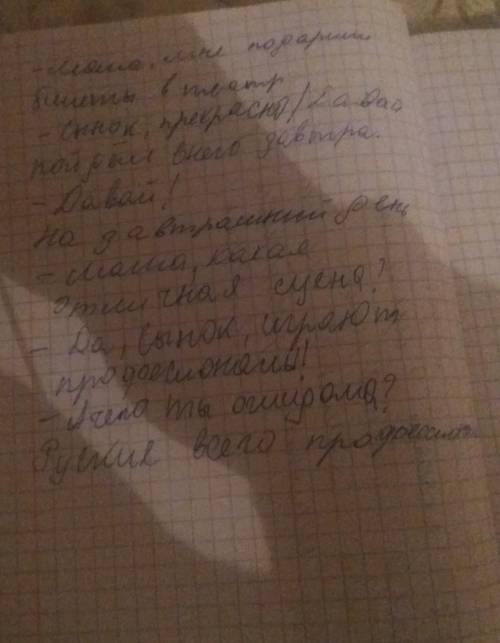 - Мама, мне подарили
билеты в театр
- Сынок, прекрасно! Давай
пойдём в него завтра.
- Давай!
На завтрашний день
- Мама, какая
отличная сцена?
- Да, сынок, играют
профессионалы!
- А чего ты ожидала?
Руские всего